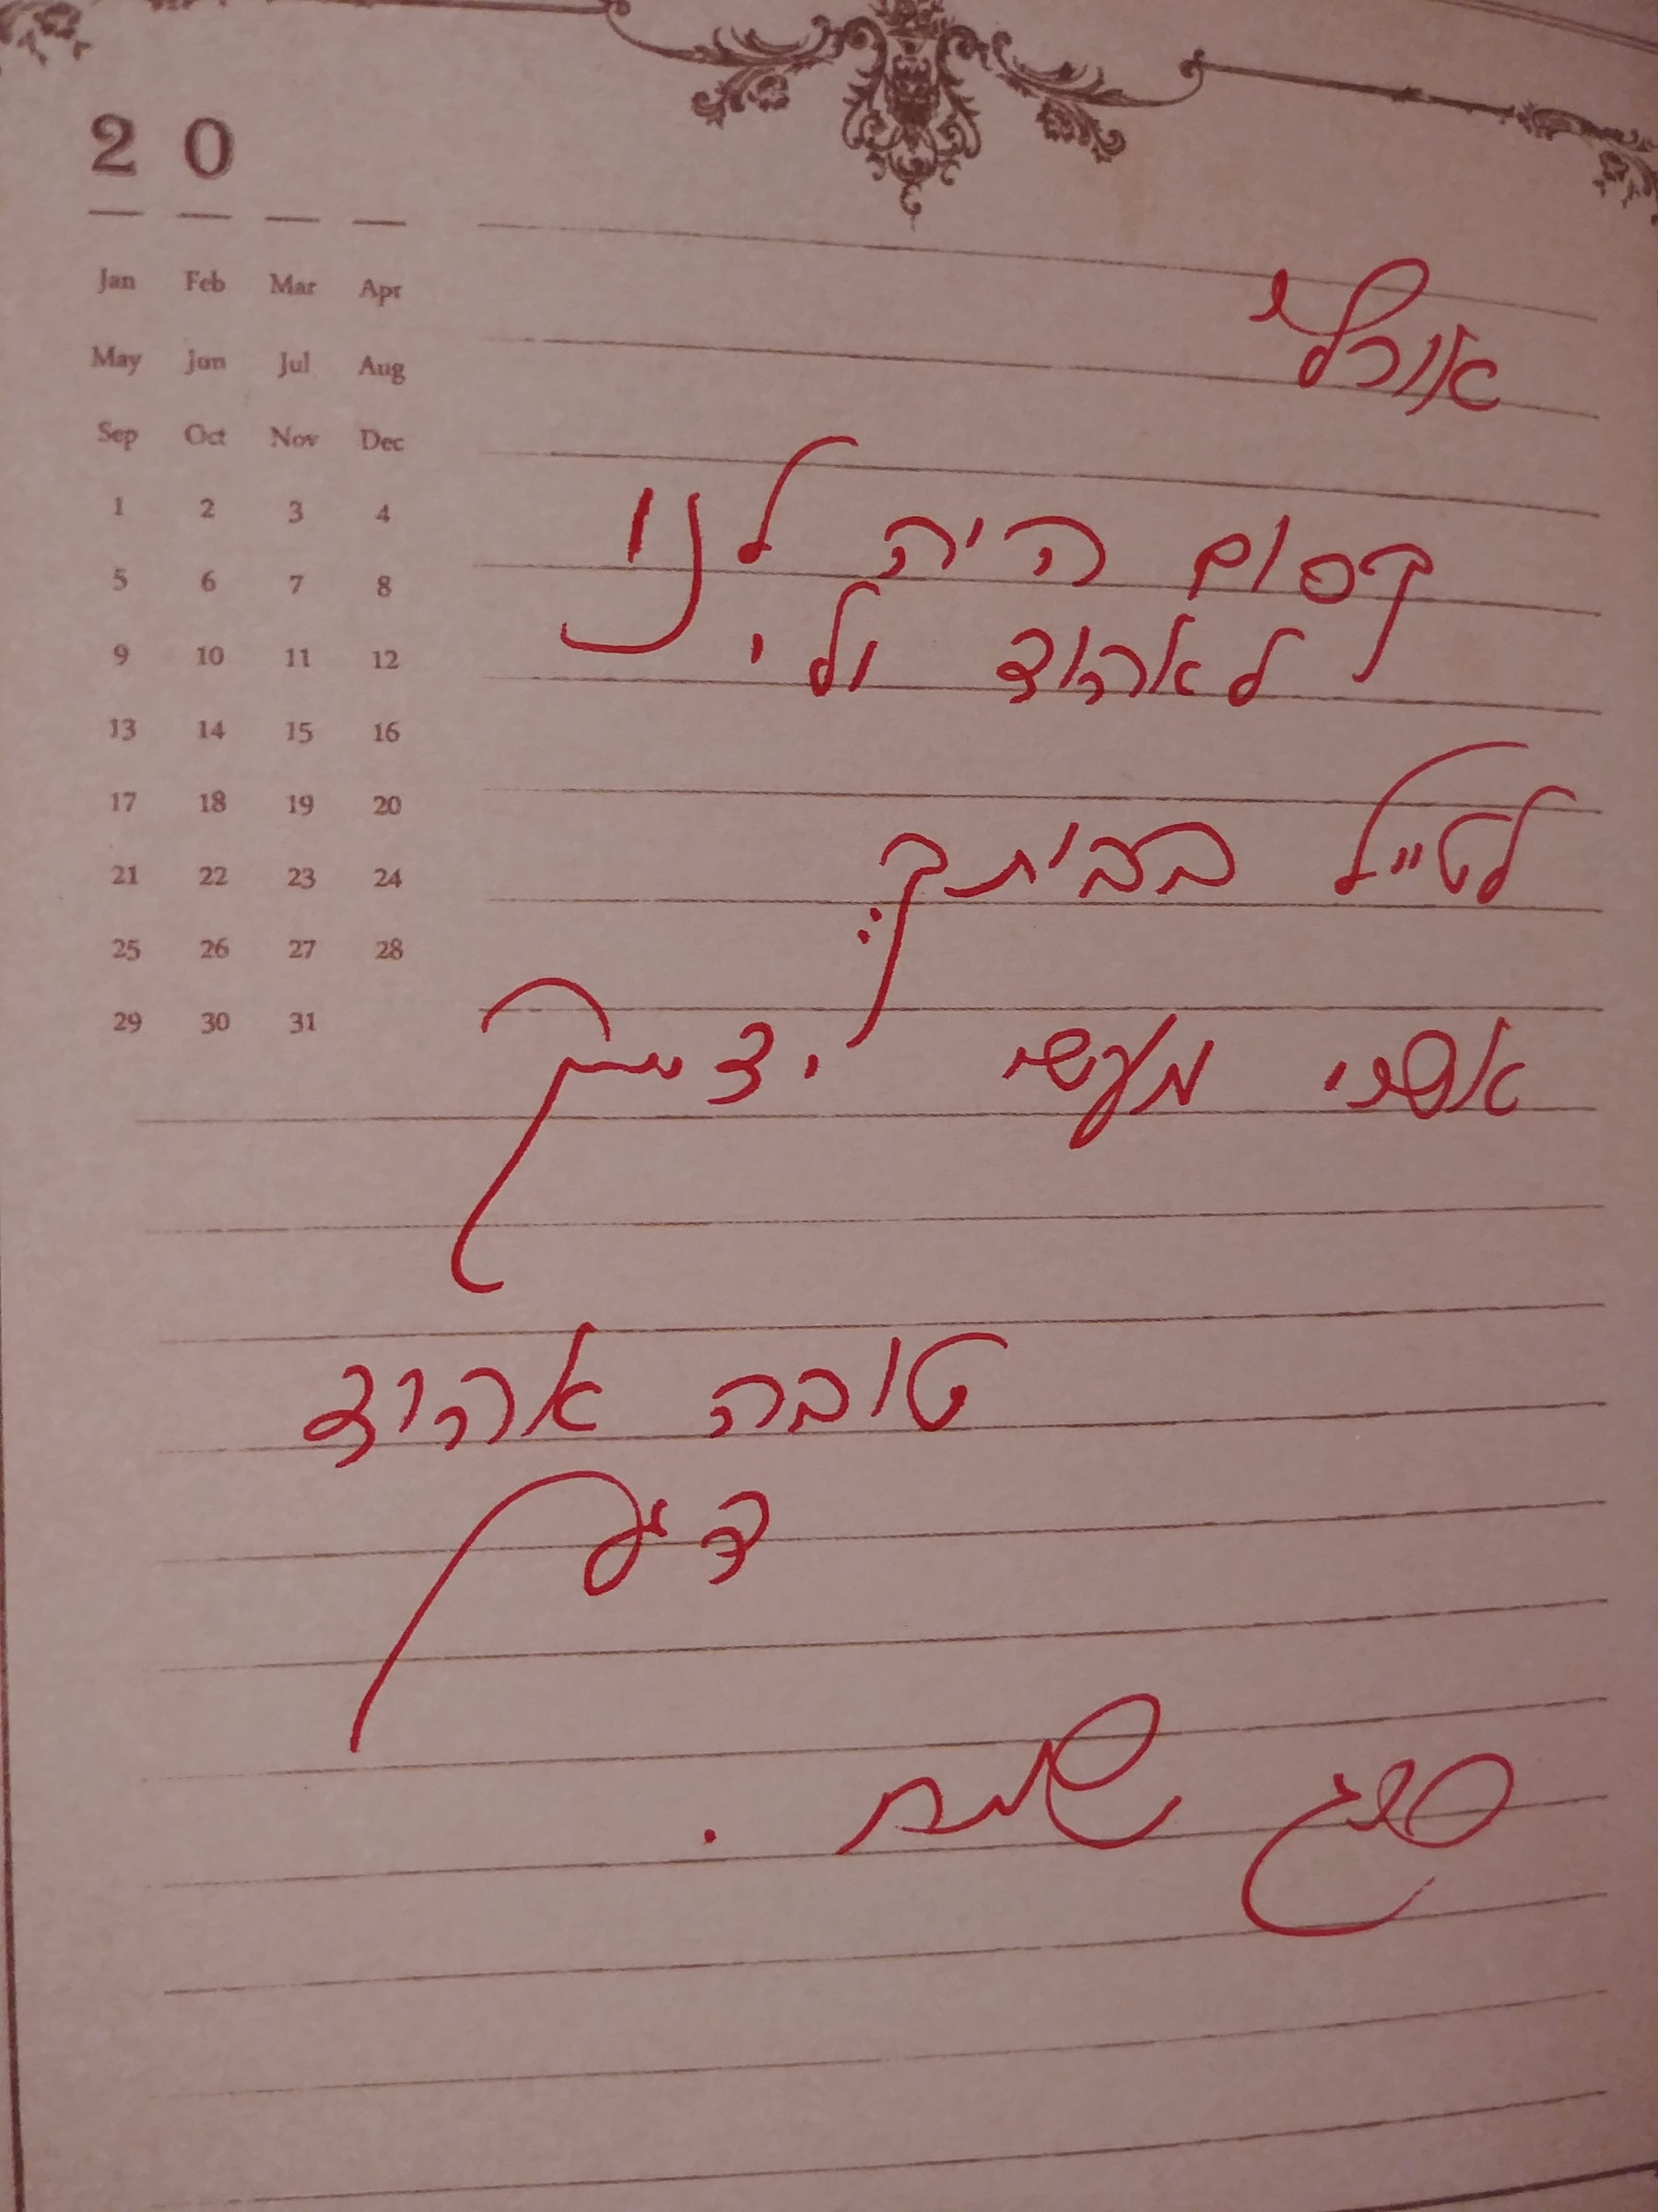 2 0
Jan Feb Mar Apr
May Jun Jul Aug
Sep Oct Nov Dec
1 2 3 4
5 6 7 8
9 10 11 12
13 14 15 16
17 18 19 20
21 22 23 24
25 26 27 28
29 30 31
אורלי
קסום היה לנו
לאהוד ולי
לטייל בביתך:
מעשי ידייך
טובה אהוד
חג שמח.